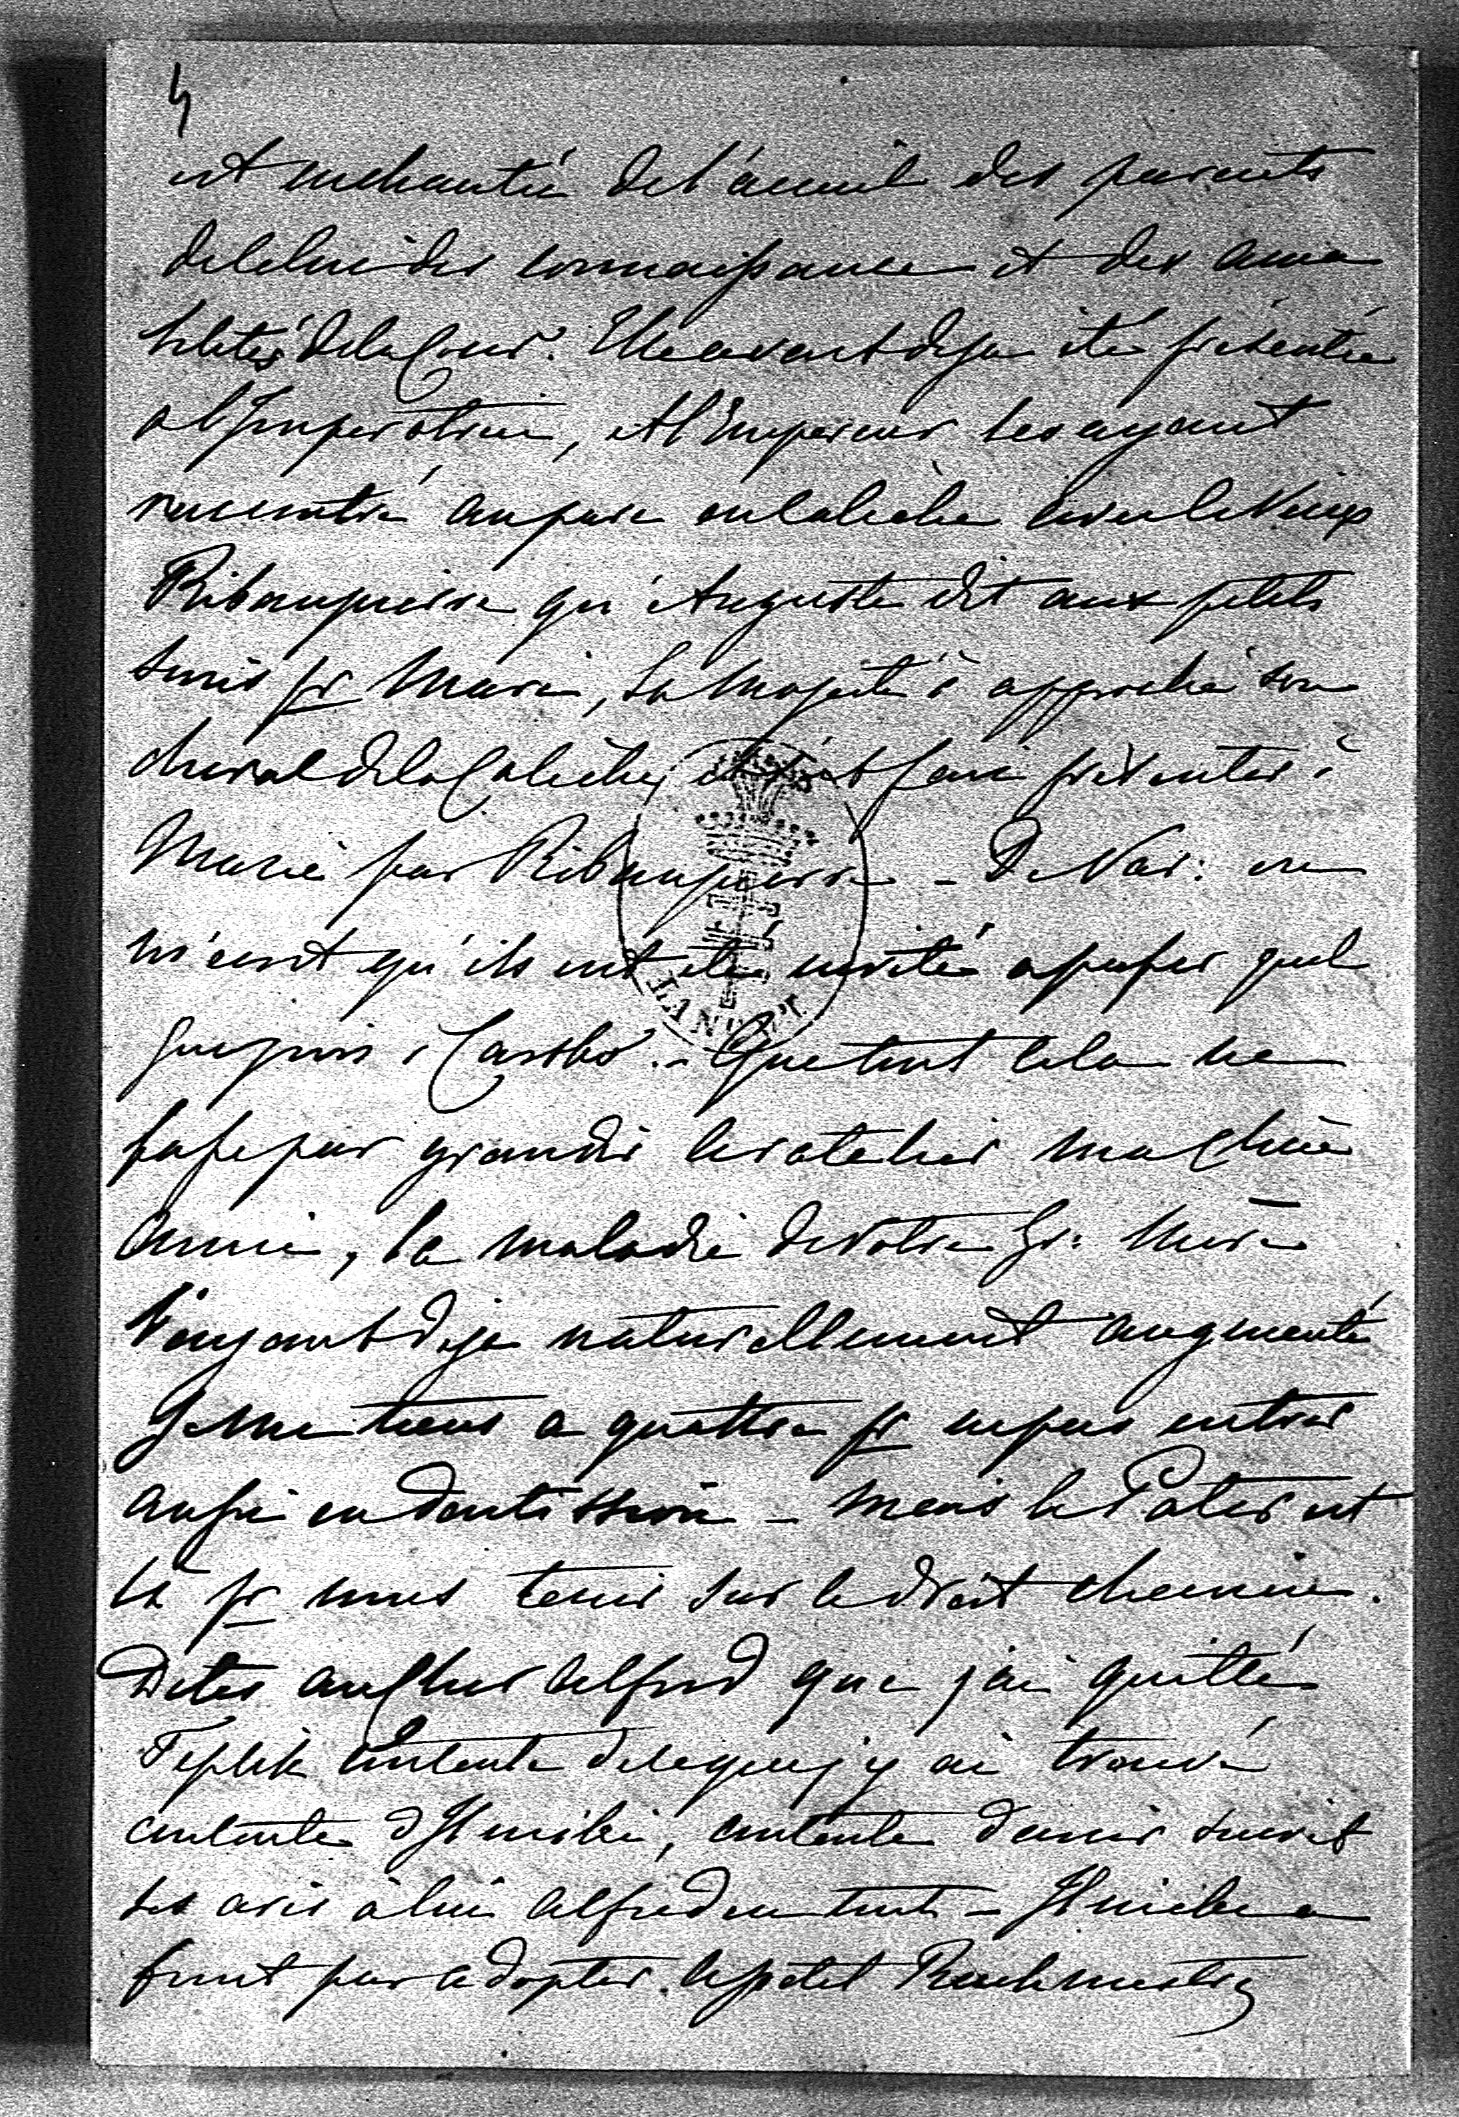 4
est enchantée de l'accueil des parents
de celui des connaissances et des ama
bilités de la Cour. Elle avait deja été présentée
a l'Imperatrice, et l'Empereur les ayant
rencontré au parc en caleche avec le vieux
Ribeaupierre qu'Auguste dit aux petits
soins pr Marie, Sa Majesté a approché son
cheval de la Caleche, et s'est fait présenter
Marie par Ribeaupierre _ De Var: on
m'ecrit qu'ils ont été invité a passer quel
ques jours a Carsko. _ Que tout cela ne
fasse pas grandir le ratelier ma Chère
Annie, la maladie de votre Gr: Mère
l'ayant deja naturellement augmenté
Je me tiens a quattre pr ne pas entrer
aussi en _ Mais le Pater est
là pr nous tenir sur le droit chemin.
Dites au Cher Alfred que j'ai quitté
Teplitz contente de ce que j'y ai trouvé
contente d', contente d'avoir suivit
ses avis à lui Alfred en tout _ a
finit par adopter le petit
LANCUT